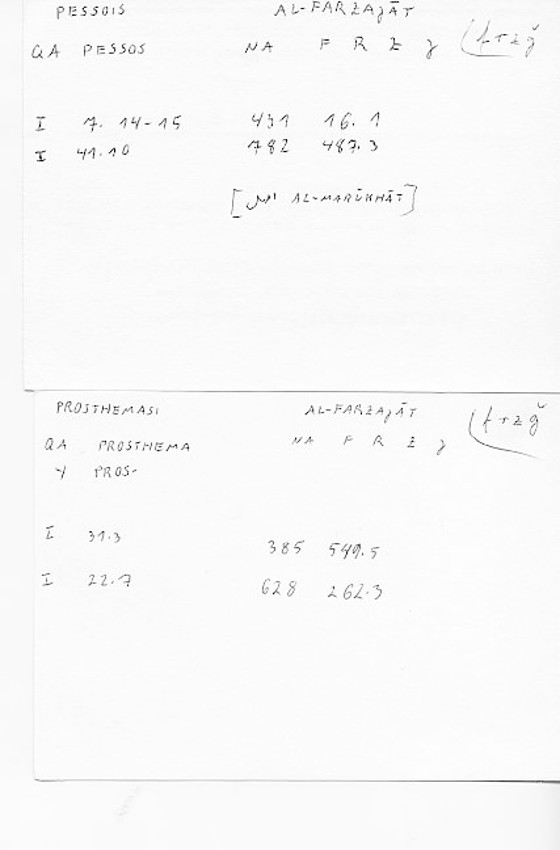 PESSOIS AL-FARZAJĀT
QA PESSOS NA F R Z J (frzǧ
I 7. 14-15 431 16. 1
I 41.10 782 487.3
[ AL-MARŪKHĀT]
PROSTHEMASI AL-FARZAJĀT
QA PROSTHEMA NA F R Z J (frzǧ
Y PROS-
I 31.3 385 549.5
I 22.7 628 262.3